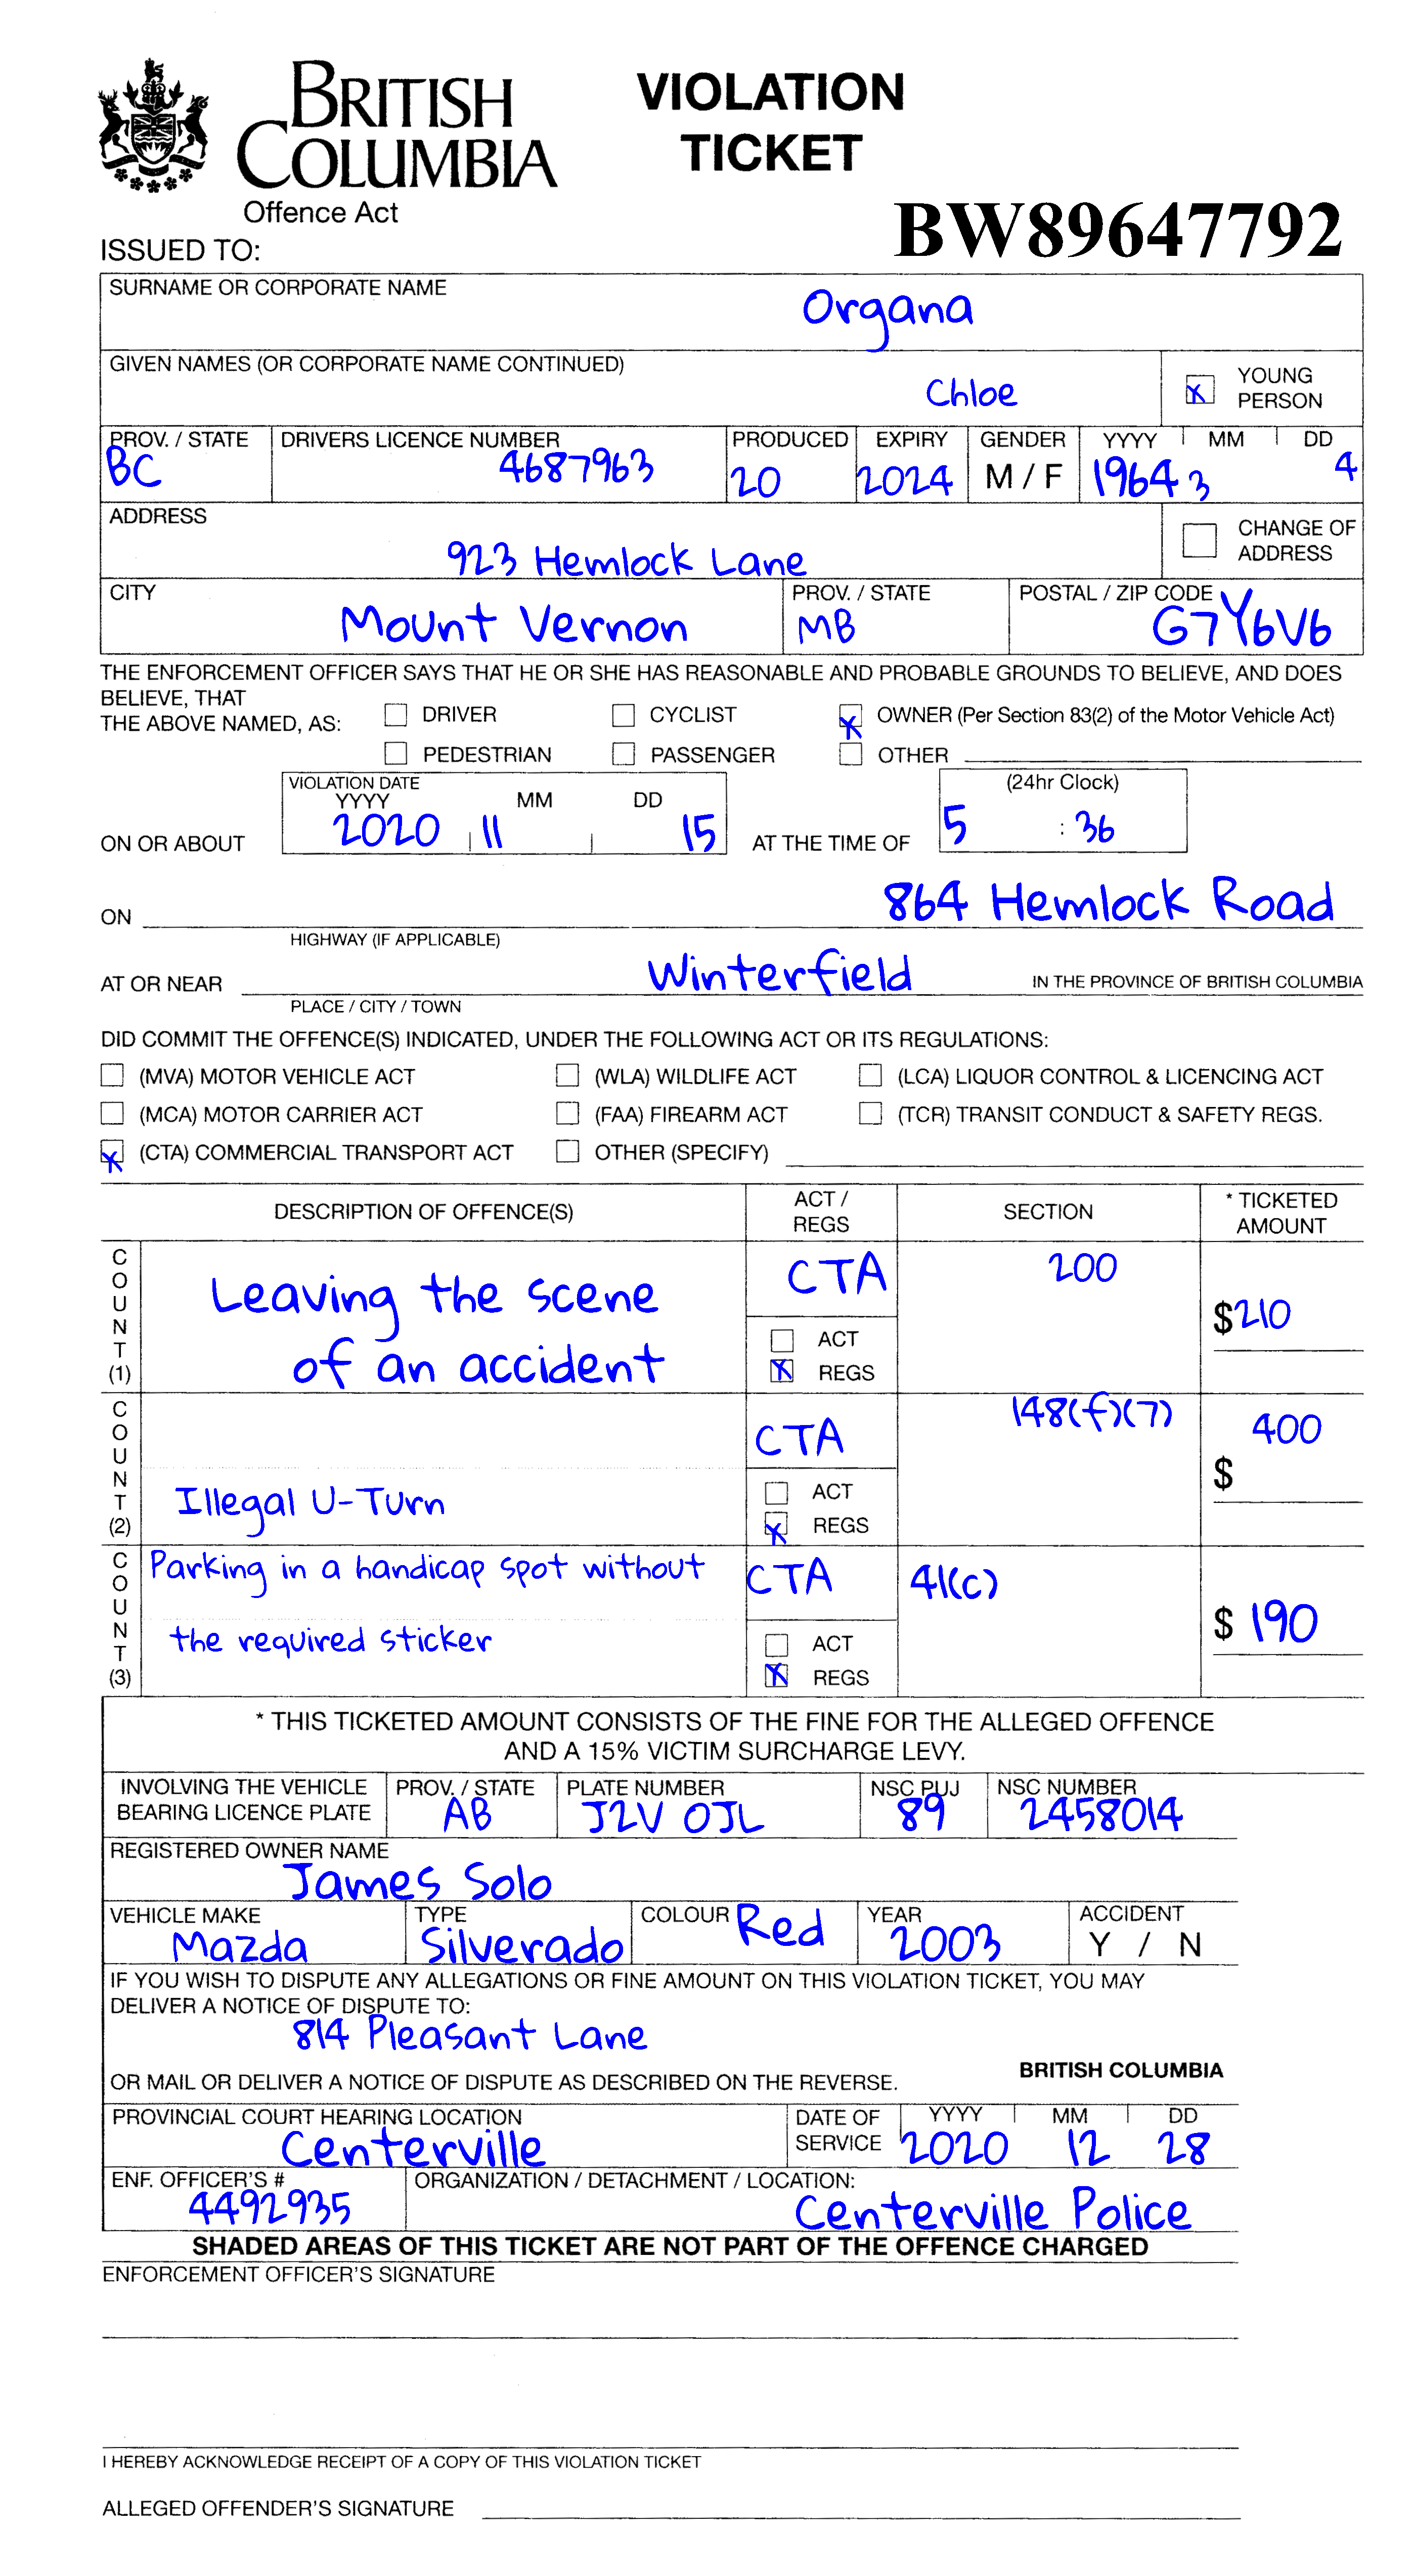 BRITISH
COLUMBIA
Offence Act
VIOLATION
TICKET
BW89647792
ISSUED TO:
SURNAME OR CORPORATE NAME
Organa
GIVEN NAMES (OR CORPORATE NAME CONTINUED)
Chloe
x YOUNG PERSON
PROV. / STATE DRIVERS LICENCE NUMBER PRODUCED EXPIRY GENDER YYYY MM DD
BC 4687963 20 2024 M / F 1964 3 4
ADDRESS
923 Hemlock Lane
CHANGE OF ADDRESS
CITY PROV. / STATE POSTAL / ZIP CODE
Mount Vernon MB G7Y6V6
THE ENFORCEMENT OFFICER SAYS THAT HE OR SHE HAS REASONABLE AND PROBABLE GROUNDS TO BELIEVE, AND DOES
BELIEVE, THAT
THE ABOVE NAMED, AS: DRIVER CYCLIST x OWNER (Per Section 83(2) of the Motor Vehicle Act)
PEDESTRIAN PASSENGER OTHER
VIOLATION DATE (24hr Clock)
YYYY MM DD
ON OR ABOUT 2020 11 15 AT THE TIME OF 5 : 36
ON 864 Hemlock Road
HIGHWAY (IF APPLICABLE)
AT OR NEAR Winterfield IN THE PROVINCE OF BRITISH COLUMBIA
PLACE / CITY / TOWN
DID COMMIT THE OFFENCE(S) INDICATED, UNDER THE FOLLOWING ACT OR ITS REGULATIONS:
(MVA) MOTOR VEHICLE ACT (WLA) WILDLIFE ACT (LCA) LIQUOR CONTROL & LICENCING ACT
(MCA) MOTOR CARRIER ACT (FAA) FIREARM ACT (TCR) TRANSIT CONDUCT & SAFETY REGS.
x (CTA) COMMERCIAL TRANSPORT ACT OTHER (SPECIFY)
DESCRIPTION OF OFFENCE(S) ACT / REGS SECTION * TICKETED AMOUNT
COUNT (1)
Leaving the scene
of an accident
CTA
ACT
x REGS
200
$210
COUNT (2)
Illegal U-Turn
CTA
ACT
x REGS
148(f)(7)
$ 400
COUNT (3)
Parking in a handicap spot without
the required sticker
CTA
ACT
x REGS
41(c)
$ 190
* THIS TICKETED AMOUNT CONSISTS OF THE FINE FOR THE ALLEGED OFFENCE
AND A 15% VICTIM SURCHARGE LEVY.
INVOLVING THE VEHICLE BEARING LICENCE PLATE
PROV. / STATE PLATE NUMBER NSC PUJ NSC NUMBER
AB J2V 0JL 89 2458014
REGISTERED OWNER NAME
James Solo
VEHICLE MAKE TYPE COLOUR YEAR ACCIDENT
Mazda Silverado Red 2003 Y / N
IF YOU WISH TO DISPUTE ANY ALLEGATIONS OR FINE AMOUNT ON THIS VIOLATION TICKET, YOU MAY
DELIVER A NOTICE OF DISPUTE TO:
814 Pleasant Lane
BRITISH COLUMBIA
OR MAIL OR DELIVER A NOTICE OF DISPUTE AS DESCRIBED ON THE REVERSE.
PROVINCIAL COURT HEARING LOCATION DATE OF SERVICE YYYY MM DD
Centerville 2020 12 28
ENF. OFFICER'S # ORGANIZATION / DETACHMENT / LOCATION:
4492935 Centerville Police
SHADED AREAS OF THIS TICKET ARE NOT PART OF THE OFFENCE CHARGED
ENFORCEMENT OFFICER'S SIGNATURE
I HEREBY ACKNOWLEDGE RECEIPT OF A COPY OF THIS VIOLATION TICKET
ALLEGED OFFENDER'S SIGNATURE